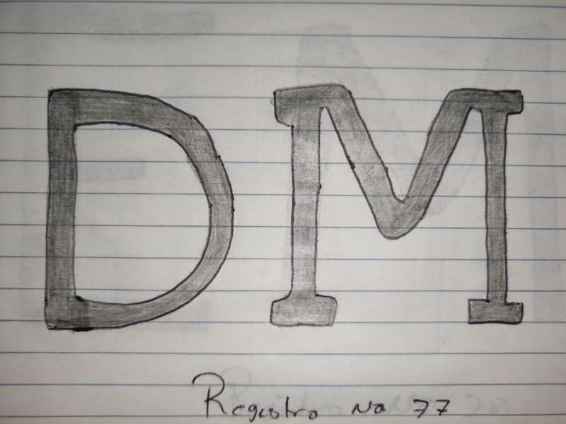 DM
Registro No 77